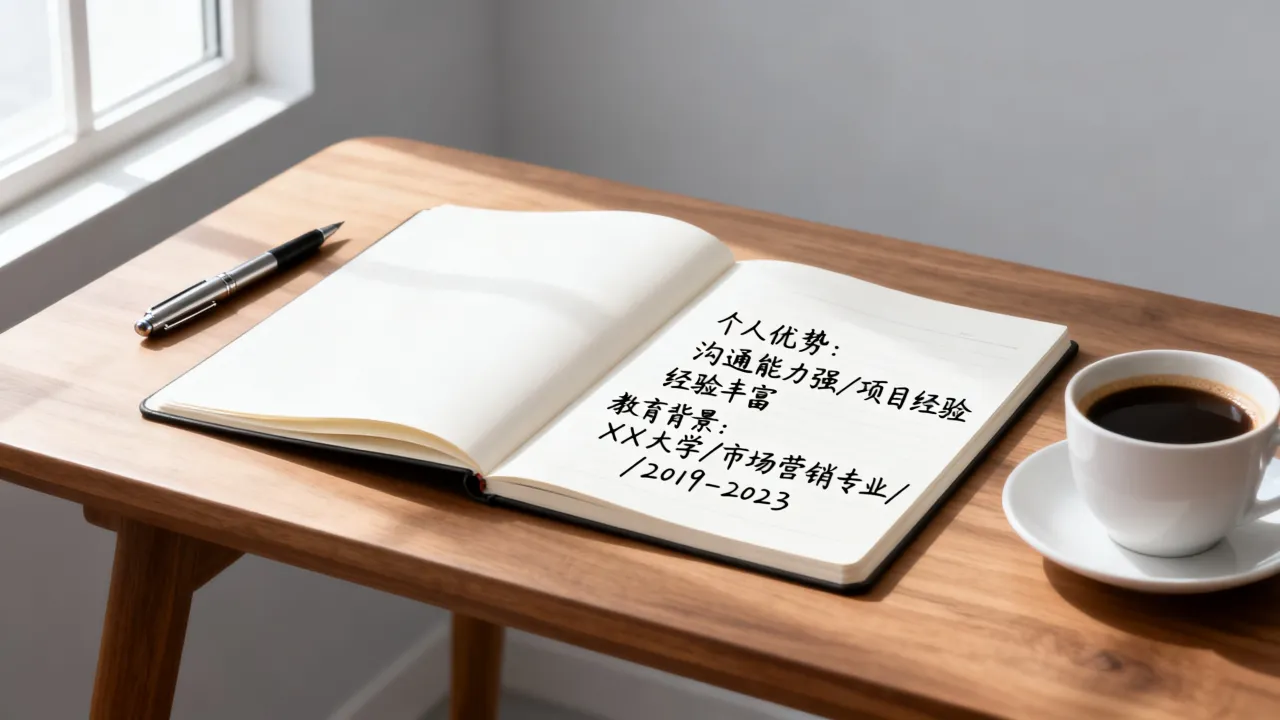 个人优势：
沟通能力强/项目经验
经验丰富
教育背景：
XX大学/市场营销专业/
/2019-2023